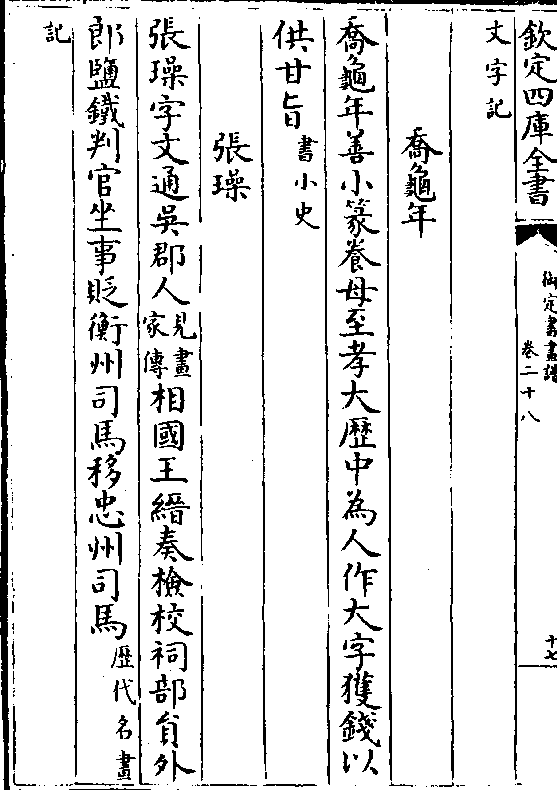 欽定四庫全書
御定書畫譜
卷二十八
十七
文字記
喬龜年
喬龜年善小篆養母至孝大歷中為人作大字獲錢以
供甘旨書小史
張璪
張璪字文通吳郡人見畫家傳相國王縉奏檢校祠部貟外
郎鹽鐵判官坐事貶衡州司馬移忠州司馬歷代名畫
記